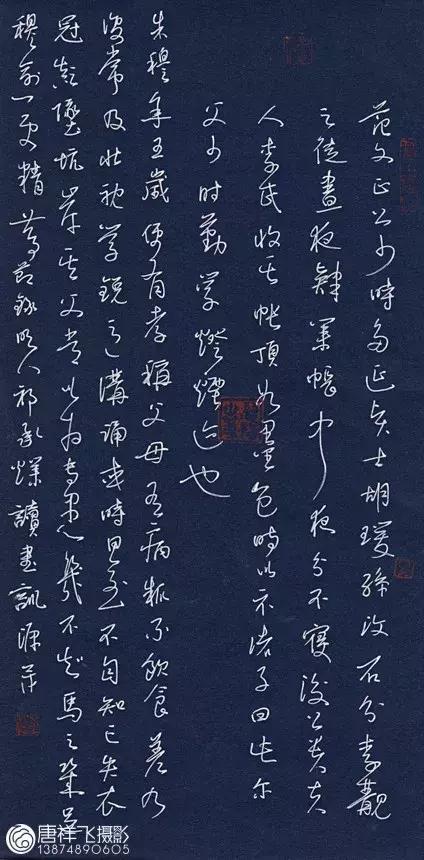 范文正公少時多延賢士胡瑗孫復石介李覯
之徒晝夜肄業帳中夜分不寢後公貴夫
人李氏收其帳頂如墨色時以示諸子曰此尔
父少時勤學燈煙迹也
朱穆年五歲便有孝稱父母有病輒不飲食差乃
復常及壯耽學銳意講誦或時思至不自知亡失衣
冠顛墜坑岸其父常以為專愚幾不知馬之幾足
穆愈更精篤節錄明人祁承㸁讀書訓源萍
唐祥飞摄影
13874890605